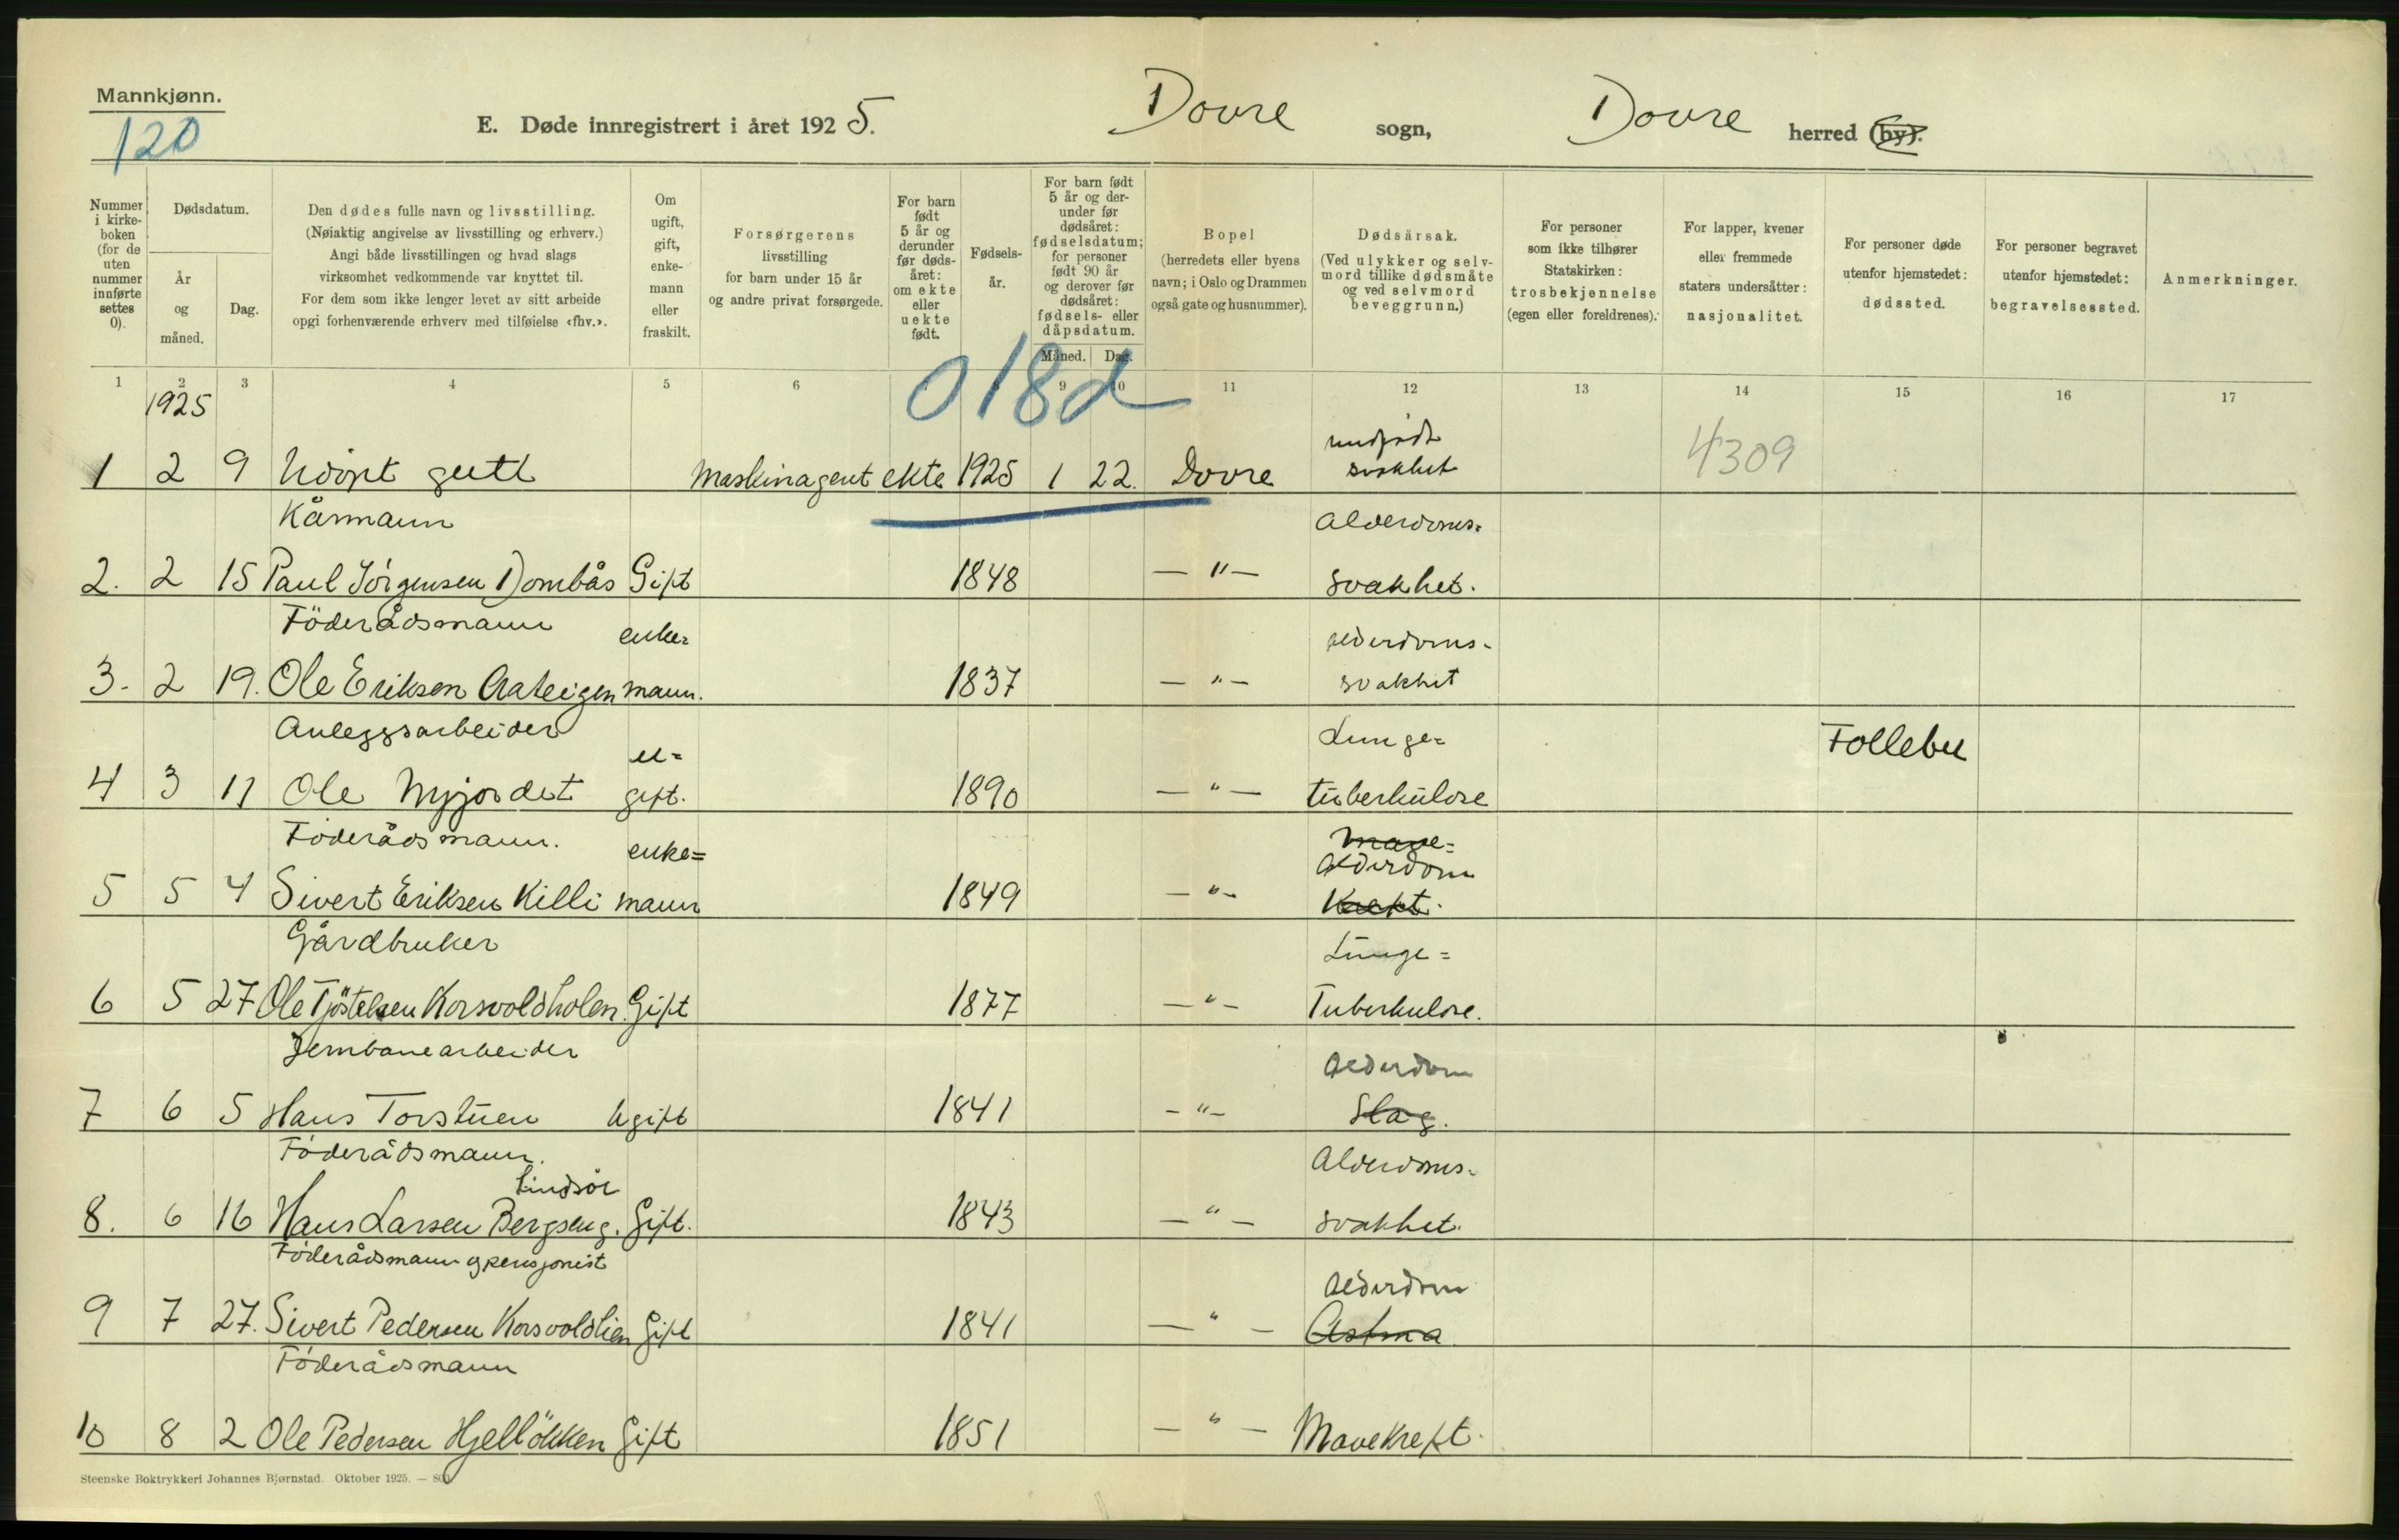 Mannkjønn.
120
E. Døde innregistrert i året 1925.
Dovre sogn,
Dovre herred (by).
Nummer i kirke-boken (for de uten nummer innførte settes 0).
Dødsdatum.
År og måned.
Dag.
Den dødes fulle navn og livsstilling.
(Nøiaktig angivelse av livsstilling og erhverv.)
Angi både livsstillingen og hvad slags
virksomhet vedkommende var knyttet til.
For dem som ikke lenger levet av sitt arbeide
opgi forhenværende erhverv med tilføielse «fhv.».
Om ugift, gift, enke-mann eller fraskilt.
Forsørgerens livsstilling for barn under 15 år og andre privat forsørgede.
For barn født 5 år og derunder før døds-året: om ekte eller uekte født.
Fødsels-år.
For barn født 5 år og der-under før dødsåret: fødselsdatum; for personer født 90 år og derover før dødsåret: fødsels- eller dåpsdatum.
Måned. Dag.
Bopel (herredets eller byens navn; i Oslo og Drammen også gate og husnummer).
Dødsårsak. (Ved ulykker og selv-mord tillike dødsmåte og ved selvmord beveggrunn.)
For personer som ikke tilhører Statskirken: trosbekjennelse (egen eller foreldrenes).
For lapper, kvener eller fremmede staters undersåtter: nasjonalitet.
For personer døde utenfor hjemstedet: dødssted.
For personer begravet utenfor hjemstedet: begravelsessted.
Anmerkninger.
1 2 3 4 5 6 7 8 9 10 11 12 13 14 15 16 17
1925
018d
4309
1 2 9 Udöpt gutt Maskinagent ekte 1925 1 22. Dovre medfødt svakhet
Kårmann Alderdoms=
2. 2 15 Paul Jörgensen Dombås Gift 1848 — " — svakhet.
Föderådsmann enke= alderdoms-
3. 2 19. Ole Eriksen Aateigen mann. 1837 — " — svakhet
Anleggsarbeider u= Lunge= Follebu
4 3 11 Ole Nyjordet gift. 1890 — " — tuberkulose
Föderådsmann. enke= Mave= Alderdom
5 5 4 Sivert Eriksen Killi mann 1849 — " — Kreft.
Gårdbruker Lunge=
6 5 27 Ole Tjöstelsen Korsvoldholen Gift 1877 — " — Tuberkulose.
Jernbanearbeider Alderdom
7 6 5 Hans Torstuen Ugift 1841 — " — Slag.
Föderådsmann. Alderdoms-
Lindsö
8. 6 16 Hans Larsen Bergseng. Gift. 1843 — " — svakhet.
Föderådsmann og pensjonist Alderdom
9 7 27. Sivert Pedersen Korsvoldlien Gift 1841 — " — Astma
Föderådsmann
10 8 2 Ole Pedersen Hjellökken Gift 1851 — " — Mavekreft.
Steenske Boktrykkeri Johannes Bjørnstad. Oktober 1925. —